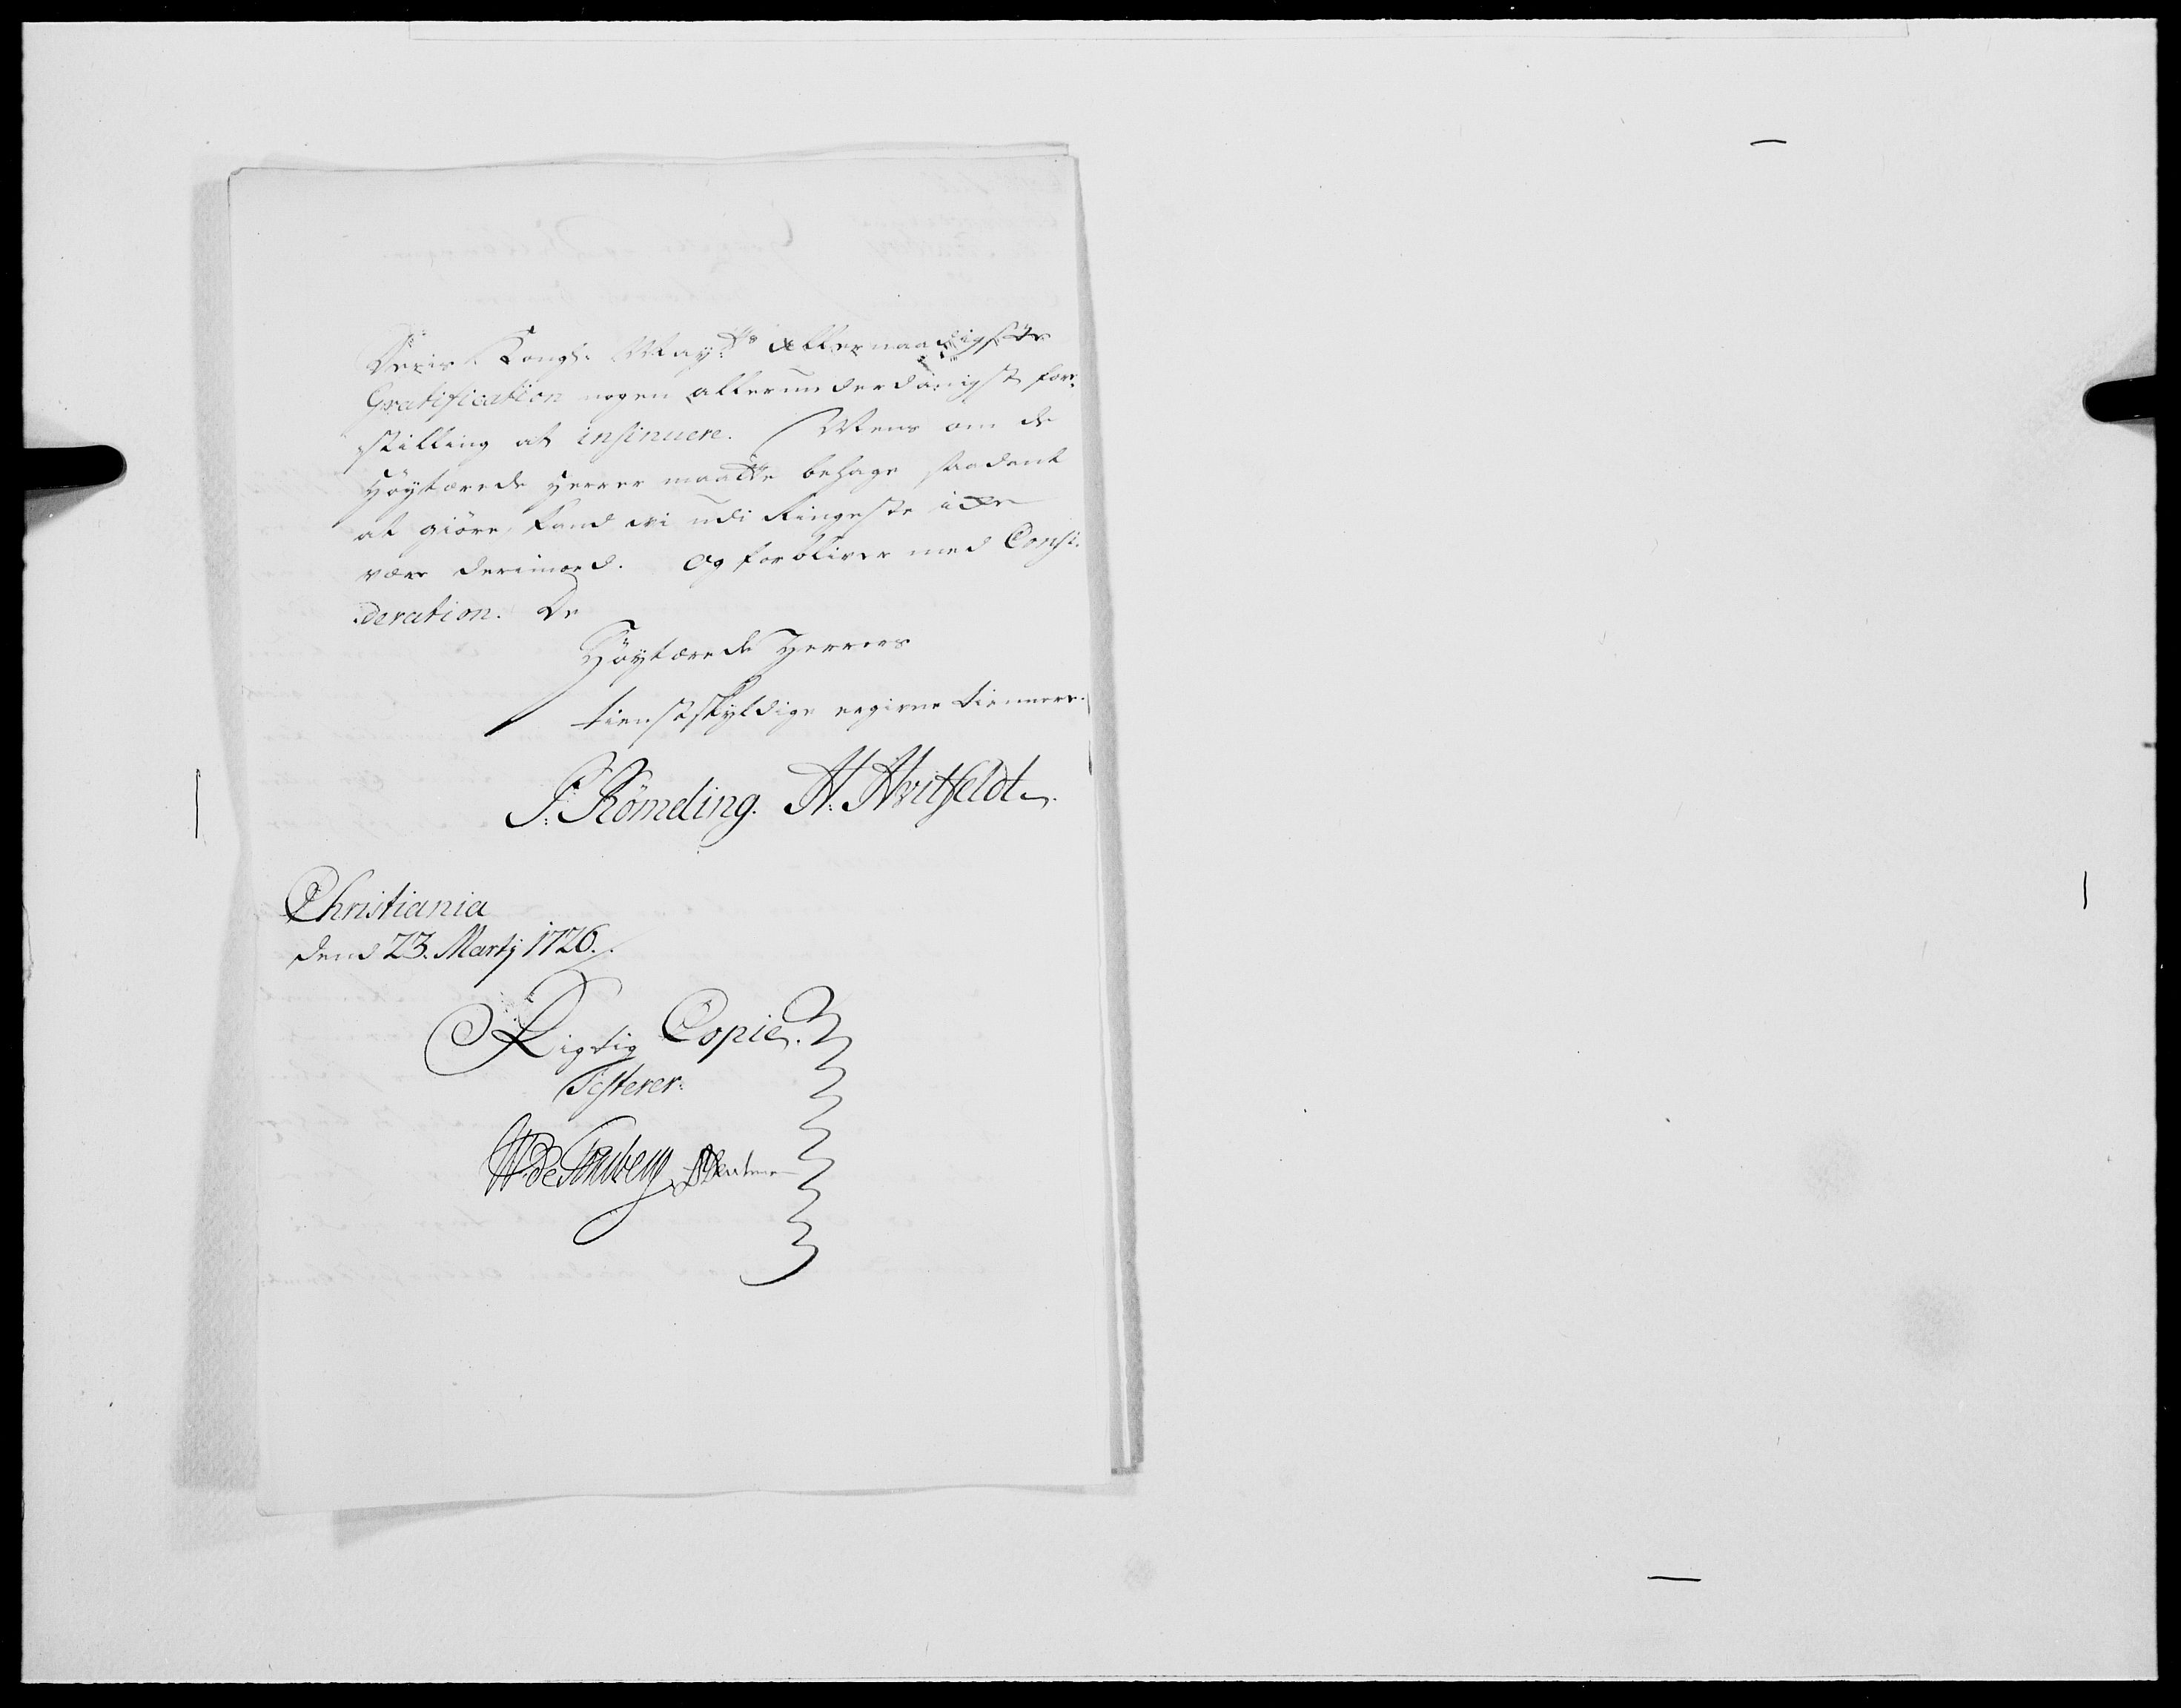 Deris Kongl: May:tts Allernaadigste
Gratification nogen allerunderdanigst for„
stilling at insinuere. Mens om de
Høytærede Herrer maatte behage saadant
at giöre, kand vi udi Ringeste icke
være derimod. Og forbliver med Consi„
deration. De
Høytærede Herrers
tienstskyldige ergivne tiennere
P: Römeling. H: Hvitfeldt
Christiania
dend 23. Martj 1726.
Rigtig Copie.
Testerer.
W: de Tonsberg